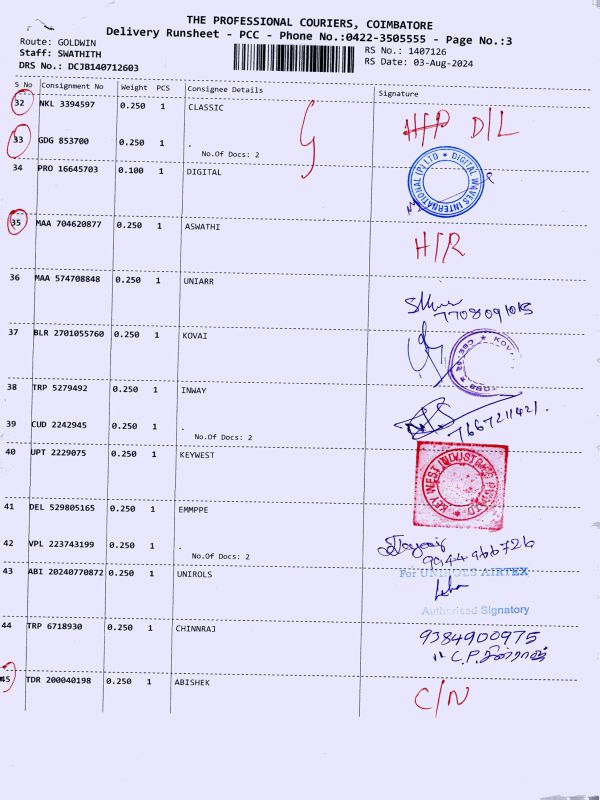 THE PROFESSIONAL COURIERS, COIMBATORE
Delivery Runsheet - PCC - Phone No.:0422-3505555 - Page No.:3
Route: GOLDWIN
RS No.: 1407126
Staff: SWATHITH
RS Date: 03-Aug-2024
DRS No.: DCJB140712603
S No Consignment No Weight PCS Consignee Details Signature
32 NKL 3394597 0.250 1 CLASSIC
H/P D/L
33 GDG 853700 0.250 1 .
No.Of Docs: 2
34 PRO 16645703 0.100 1 DIGITAL
DIGITAL WAVES INTERNATIONAL (P) LTD
35 MAA 704620877 0.250 1 ASWATHI
H/R
36 MAA 574708848 0.250 1 UNIARR
7708091015
37 BLR 2701055760 0.250 1 KOVAI
38 TRP 5279492 0.250 1 INWAY
7667211421.
39 CUD 2242945 0.250 1 .
No.Of Docs: 2
40 UPT 2229075 0.250 1 KEYWEST
KEY WEST
41 DEL 529805165 0.250 1 EMMPPE
42 VPL 223743199 0.250 1 .
9944966726
No.Of Docs: 2
43 ABI 20240770872 0.250 1 UNIROLS
For UNIROLS AIRTEX
Authorised Signatory
44 TRP 6718930 0.250 1 CHINNRAJ
9384900975
C.P. சின்ராஜ்
45 TDR 200040198 0.250 1 ABISHEK
C/N